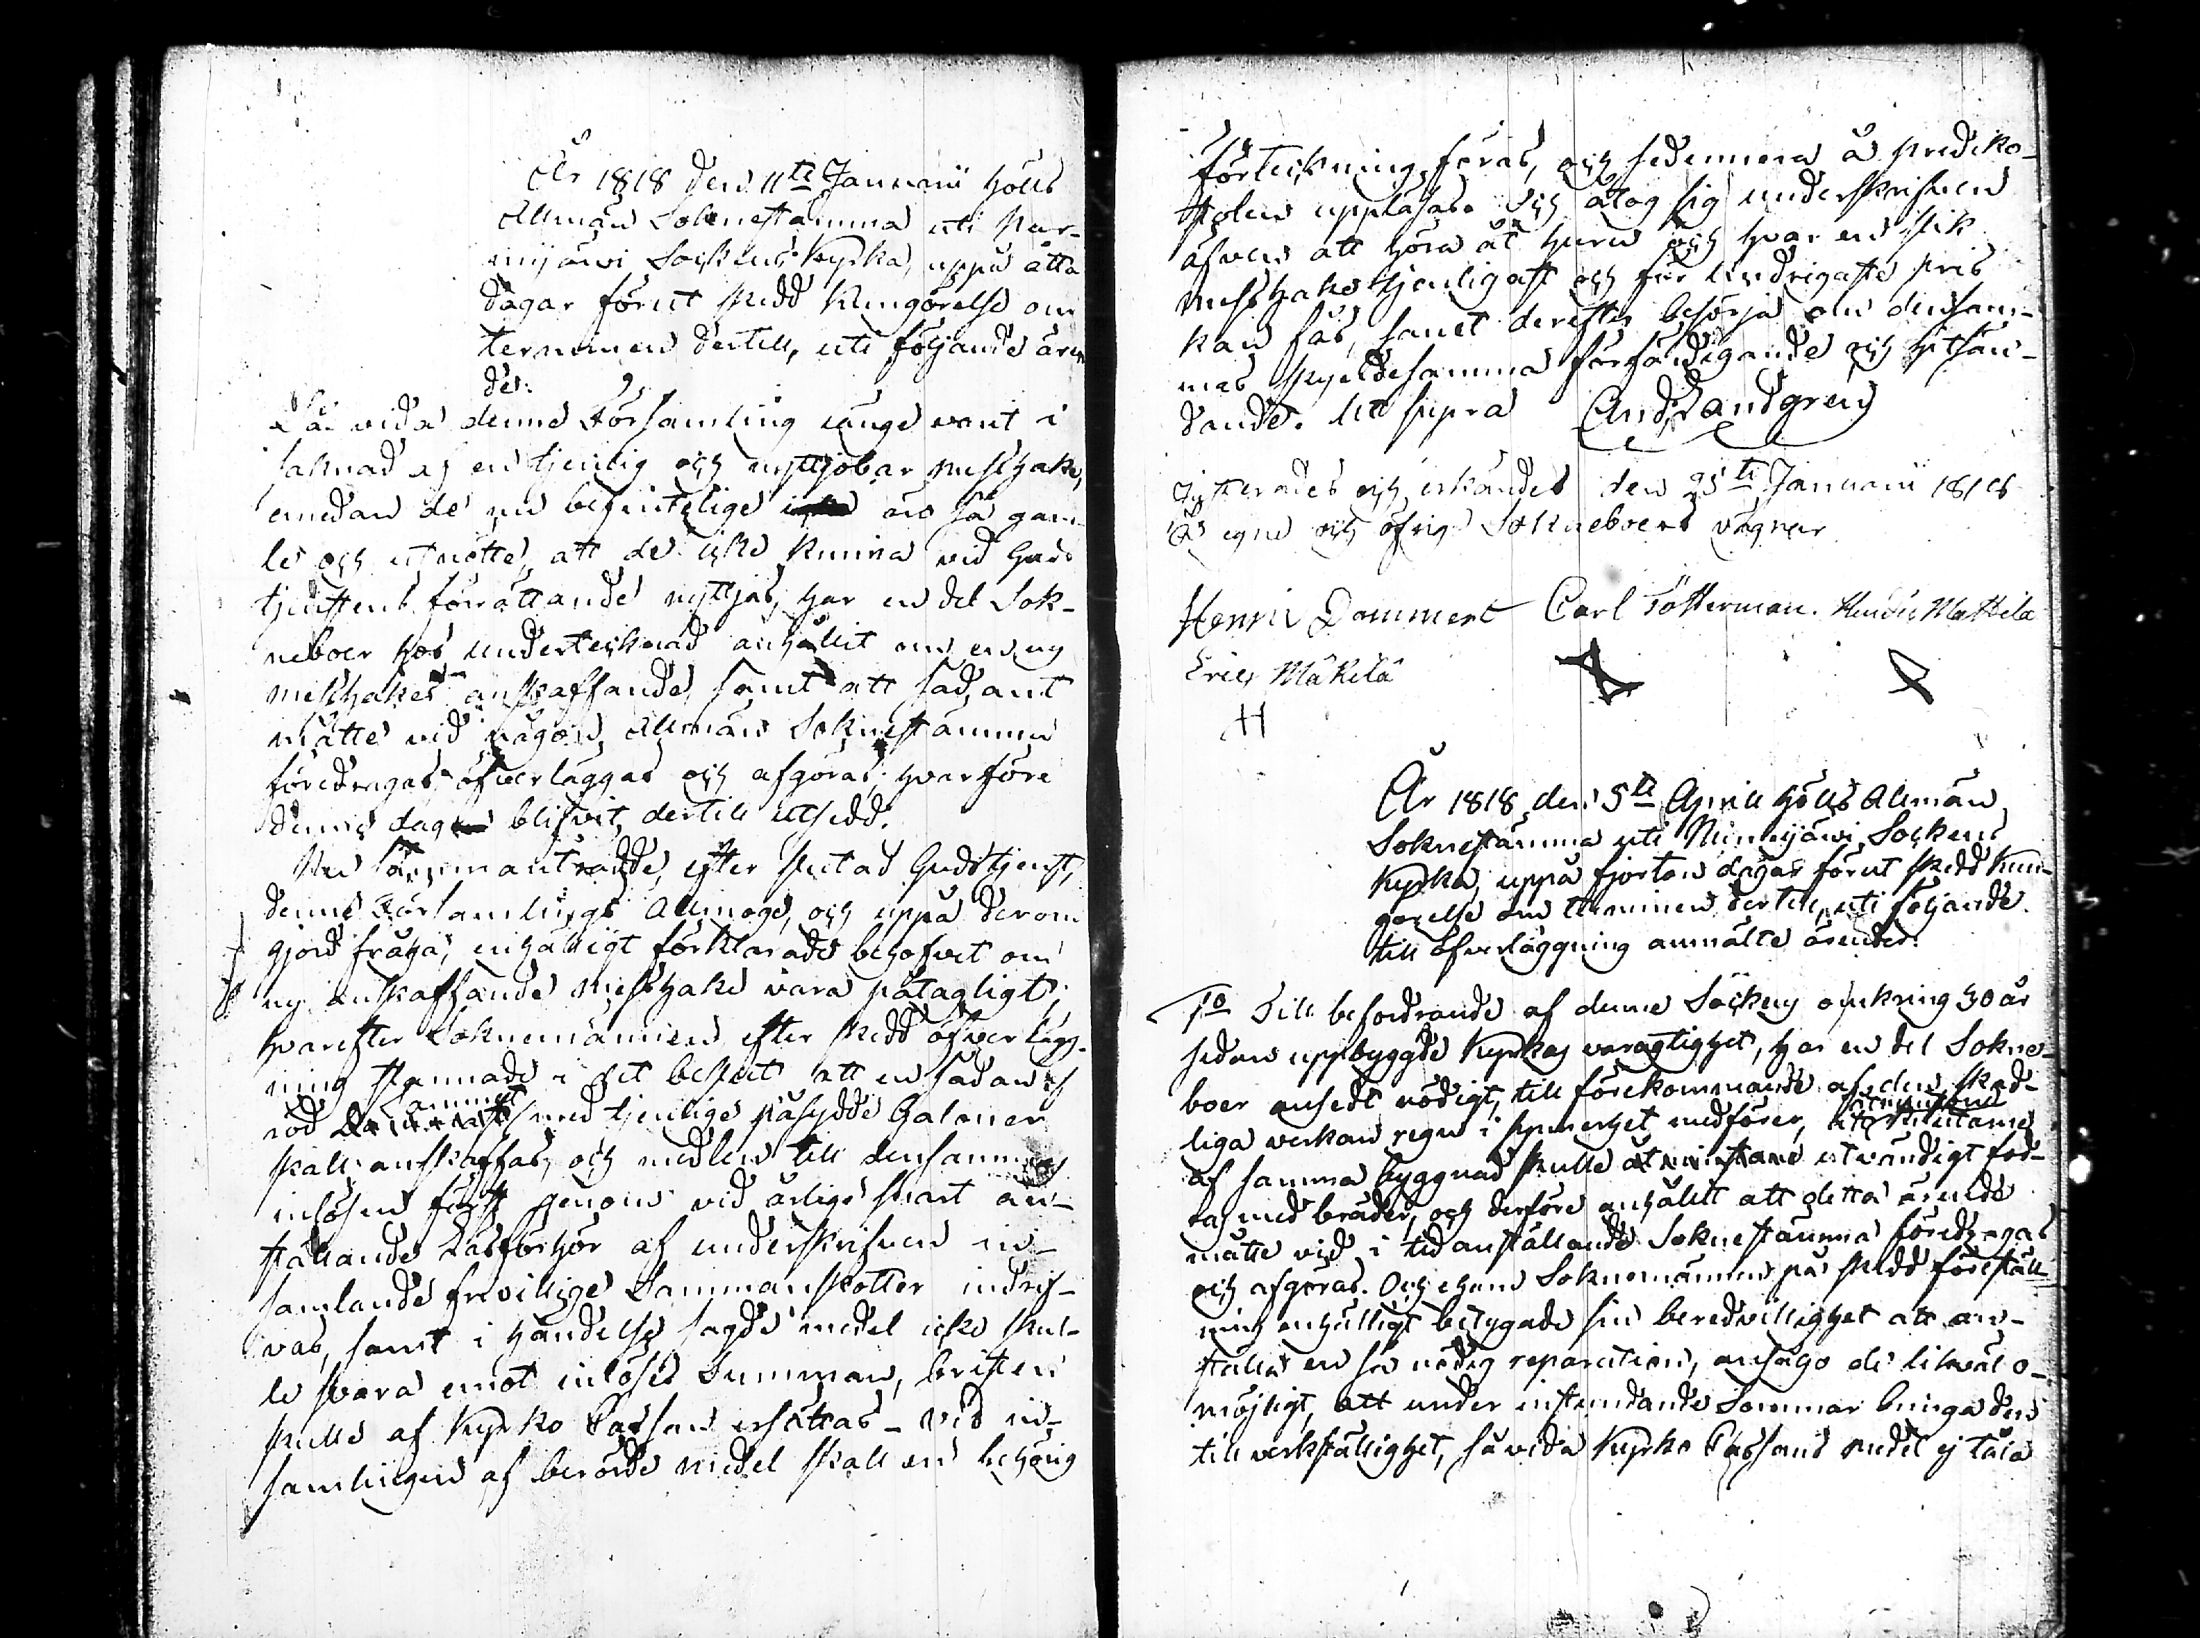 År 1818 den 11te Januarii hölls
Allmän Soknestämma uti Nur-
mijärvi Sockens Kyrka, uppå åtta
dagar förut skedd Kungörelse om
terminen dertill, uti följande ären
der.
Så vida denne Församling länge varit i
saknad af en tjenlig och nyttjobar Messhake,
emedan de nu befintelige äro så gam-
le och utnötte, att de icke kunna vid Guds
tjenstens förrättande nyttjas, har en del Sok-
neboer hos undertecknad anhållit om en ny
Messhakes anskaffande, samt att sådant
måtte vid någon Allmän Soknestämma
föredragas, öfverläggas och afgöras; hvarföre
denne dag blifvit dertill utsedd.
Nu sammanträdde, efter slutad Gudstjenst,
denne Församlings Allmoge, och uppå derom
gjord fråga, enhälligt förklarade behofvet om
ny anskaffande Messhake vara påtagligt;
hvarefter Soknemännen efter skedd öfverlägg-
ning stannade i det beslut att en sådan af
röd Sammet med tjenlige påsydde Galoner
skall anskaffas, och medlen till densammas
inlösen först genom vid årlige snart an-
stållande Läsförhör af underskrifven in-
samlande frivillige Sammanskotter indrif-
vas, samt i händelse sagde medel icke skul-
le svara emot inlösis Summan, bristen
skulle af Kyrko Cassan ersättas - Vid in-
samlingen af berörde medel skall en behörig
förteckning föras, och sedermera å prediko-
stolen uppläsas. Och åtog sig underskrifven
äfven att höra åt huru och hvar en slik
Messhake tjenligast och för lindrigaste pris
kan fås, samt derefter besörja om densam-
mas skyndesamma förfärdigande och hitsän-
dande. Ut supra And. Sandgren
Justerades och erkändes den 25te Januarii 1818
å egne och öfrige Sokneboers vägnar
Henric Dommert Carl Tötterman. Mattila
Eric Mäkilä
H
År 1818 den 5te April hölls Allmän
Soknestämma uti Nurmijärvi Sockens
Kyrka, uppå fjorton dagar förut skedd Kun-
görelse om terminen dertill, uti följande
till öfverläggning anmälte ärender.
1o Till befordrande af denne Socken omkring 30 år
sedan uppbyggde Kyrkas varagtighet, har en del Sokne-
boer ansedt nödigt, till förekommande af den skad-
liga verkan regn i synnerhet medförer,
af samma byggnad skulle åtminstone utvändigt fod-
ras med bräder, och derföre anhållit att detta ärende
måtte vid i tid anställande Soknestämma föredragas
och afgöras. Och ehuru Soknemännen på skedd föreställ-
ning enhälligt betygade sin beredvillighet att an-
ställa en så nödig reparation, ansågo de likväl o-
möjligt, att under instundande Sommar bringa den
till verkställighet, så vida Kyrko Cassans medel ej tåla